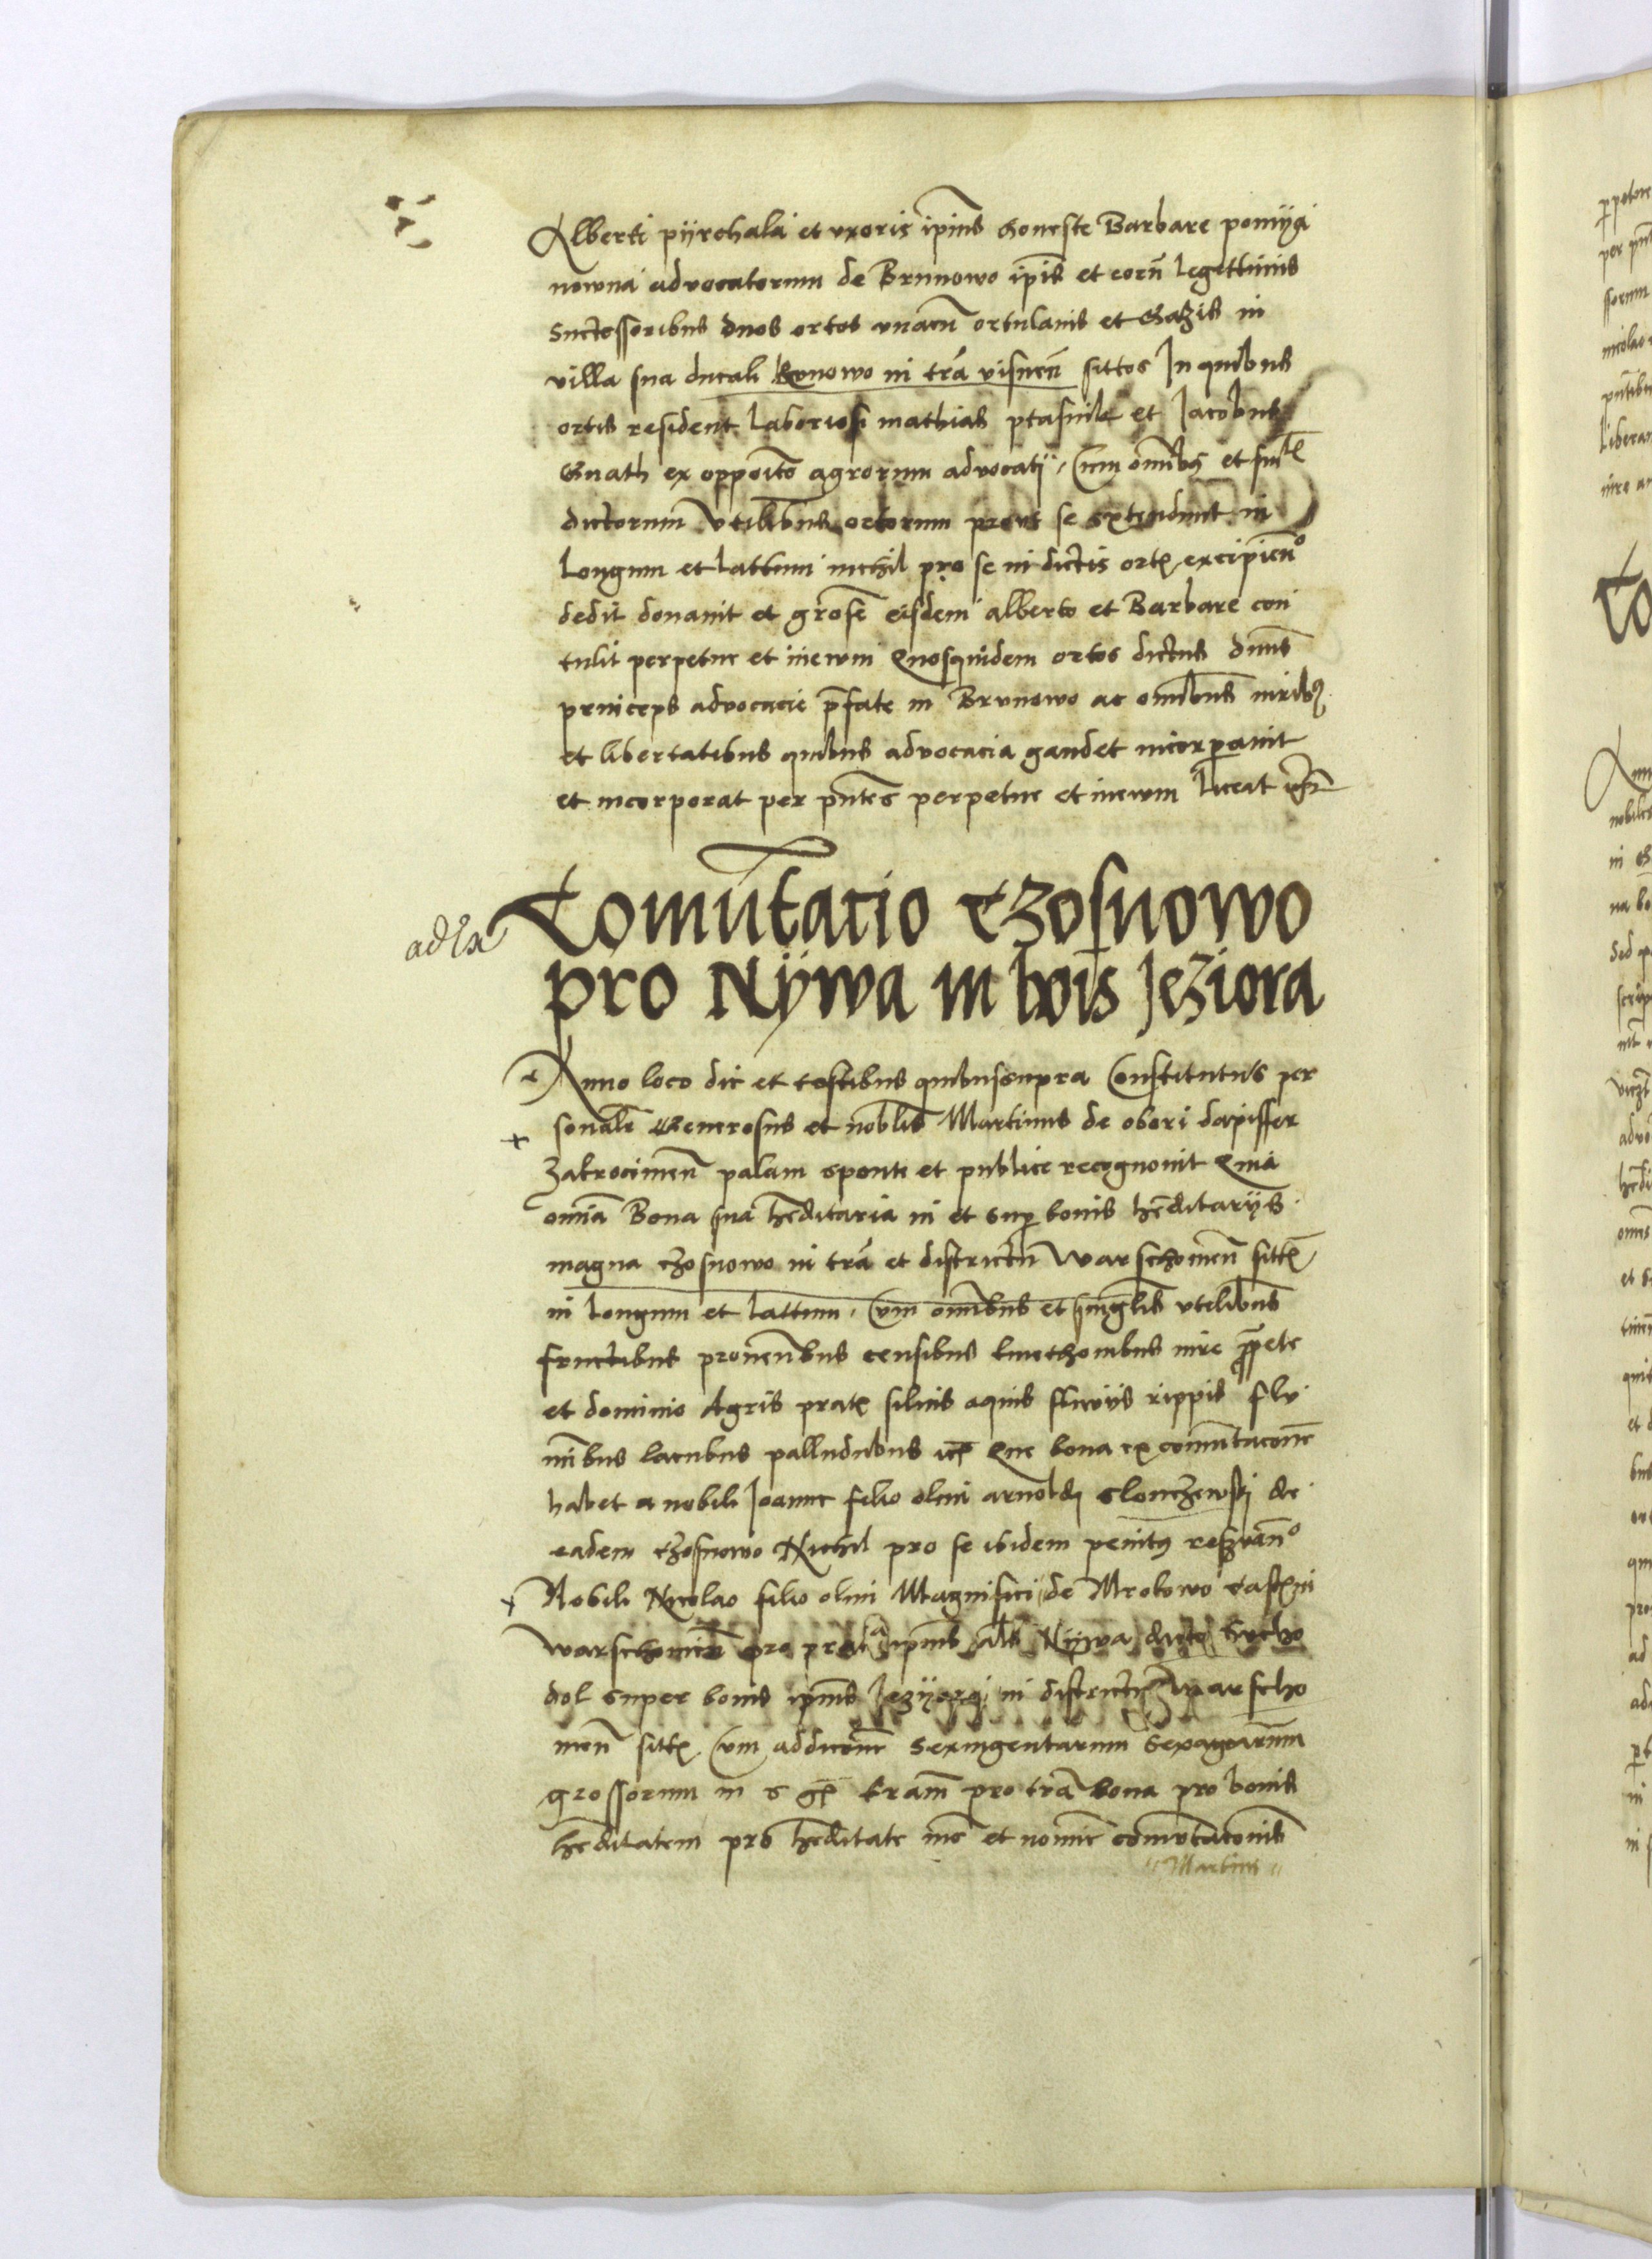 Alberti pyrchala et vxoris ip̄ius honeste Barbare pomygi
nowna advocatorum de Brunowo ip̄is et eorū legettimis
Successoribus duos ortos vnacū ortulanis et Gazis in
villa sua ducali Brunowo in tr̄a visnen̄ sittos In quibus
ortis resident laboriosi mathias ptasnik et Jacobus
Gnath ex opp̄oito agrorum advocatij Cum om̄ibus et
dictorum vtilib̄us ortorum prout se extendunt in
Longum et Lattum nichil pro se in dictis ort excipien̄o
dedit donavit et grose eisdem alberto et Barbare con
tulit perpetue et inewm Quosquidem ortos dictus Dn̄us
princeps advocacie p̄fate in Brunowo ac om̄ibus iurib9
et libertatibus quibus advocacia gaudet incorporavit
et incorporat per pn̄tes perpetue et inewm Liceat
ad Ex Comūtacio Czosnowo
pro Nywa in bōis Jeziora
Anno loco die et testibus quibussupra Constitutus per
sonal̄r Generosus et nob̄lis Martinus de obori dapiffer
Zakrocimen̄ palam sponte et publice recognovit Quia
om̄ia Bona sua hēditaria in et sup bonis hēditarijs
magna czosnowo in tr̄a et districtu Warschovien̄ sitt
in Longum et Lattum Cum om̄ibus et singlis vtilib̄us
fructibus proven̄bus censibus kmethonibus iure p̄p̄ete
et dominio Agris prat silvis aquis fluvijs rippis flu
minibus lacubus palludibus etc Que bona ex com̄utacone
habet a nobili Joanne filio olim arnoldi Slonczewski de
eadem czosnowo Nichil pro se ibidem penit9 res̄van̄o
Nobili Nicolao filio olim Magnifici de Mrokowo Castni
Warschovien̄ pro prato ip̄ius als Nywa dicto Sucho
dol super bonis ip̄ius Jezyora in districtu Warscho
vien̄ sitt Cum addicōne Sexingentarum Sexagenarum
grossorum in tr̄am pro tr̄a bona pro bonis
hēditatem pro hēditate et nomine comutacōnis
Martini